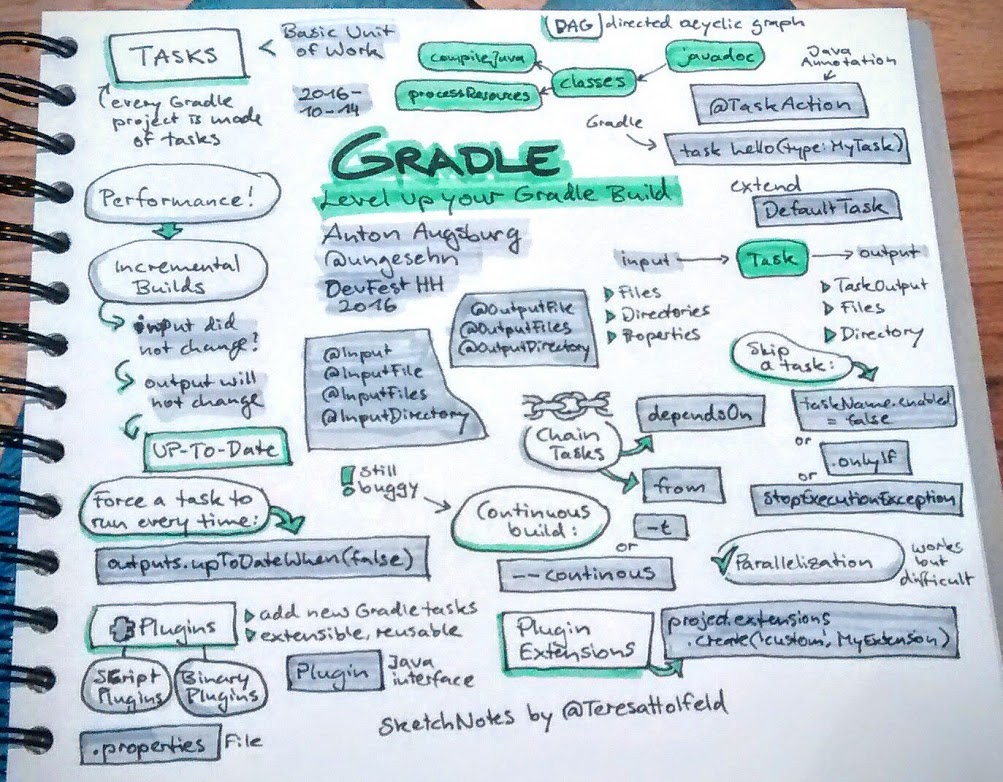 TASKS
Basic Unit
of Work
every Gradle
project is made
of tasks
2016-
10-14
DAG directed acyclic graph
compileJava
processResources
classes
javadoc
Java
Annotation
@TaskAction
Gradle
task hello(type:MyTask)
extend
DefaultTask
GRADLE
Level up your Gradle Build
Anton Augsburg
@ungesehn
DevFest HH
2016
Performance!
Incremental
Builds
input did
not change?
output will
not change
UP-TO-DATE
input
Task
output
Files
Directories
Properties
TaskOutput
Files
Directory
@OutputFile
@OutputFiles
@OutputDirectory
@Input
@InputFile
@InputFiles
@InputDirectory
Skip
a task:
taskName.enabled
= false
or
.onlyIf
or
StopExecutionException
Chain
Tasks
dependsOn
from
Force a task to
run every time:
outputs.upToDateWhen(false)
! still
buggy
Continuous
build:
-t
or
--continous
Parallelization
works
but
difficult
Plugins
add new Gradle tasks
extensible, reusable
Script
Plugins
Binary
Plugins
Plugin
Java
interface
.properties File
Plugin
Extensions
project.extensions
.create('custom', MyExtenson)
SketchNotes by @TeresaHolfeld